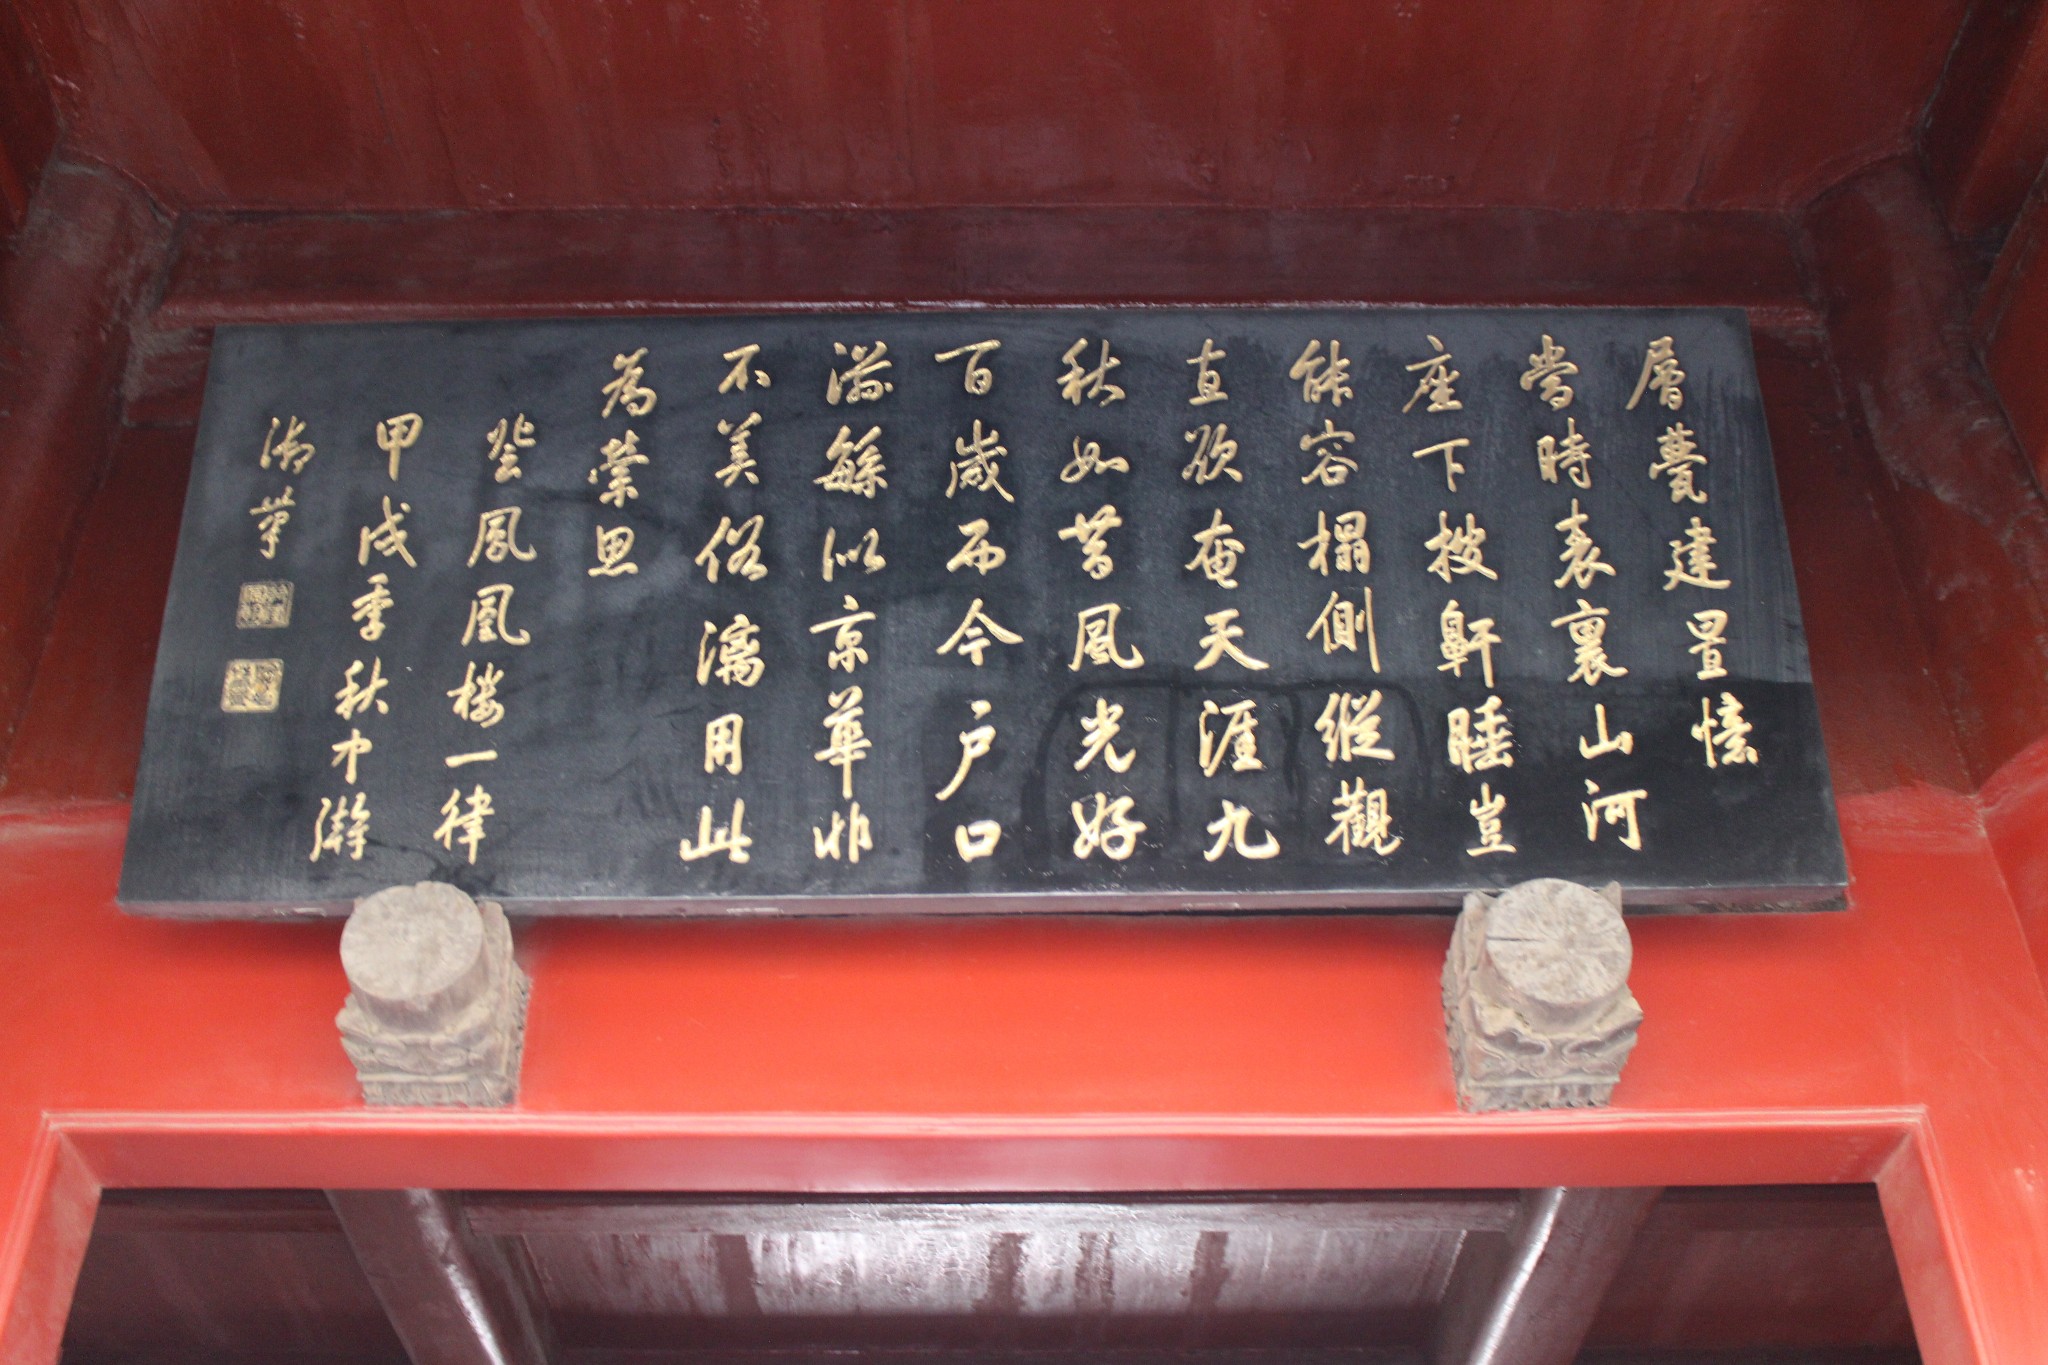 層甍建置憶
當時表裏山河
座下披軒睡豈
能容榻側縱觀
直欲奄天涯九
秋如昔風光好
百歲而今戶口
滋繇似京華非
不美俗漓用此
為縈思
登鳳凰樓一律
甲戌季秋中澣
御筆